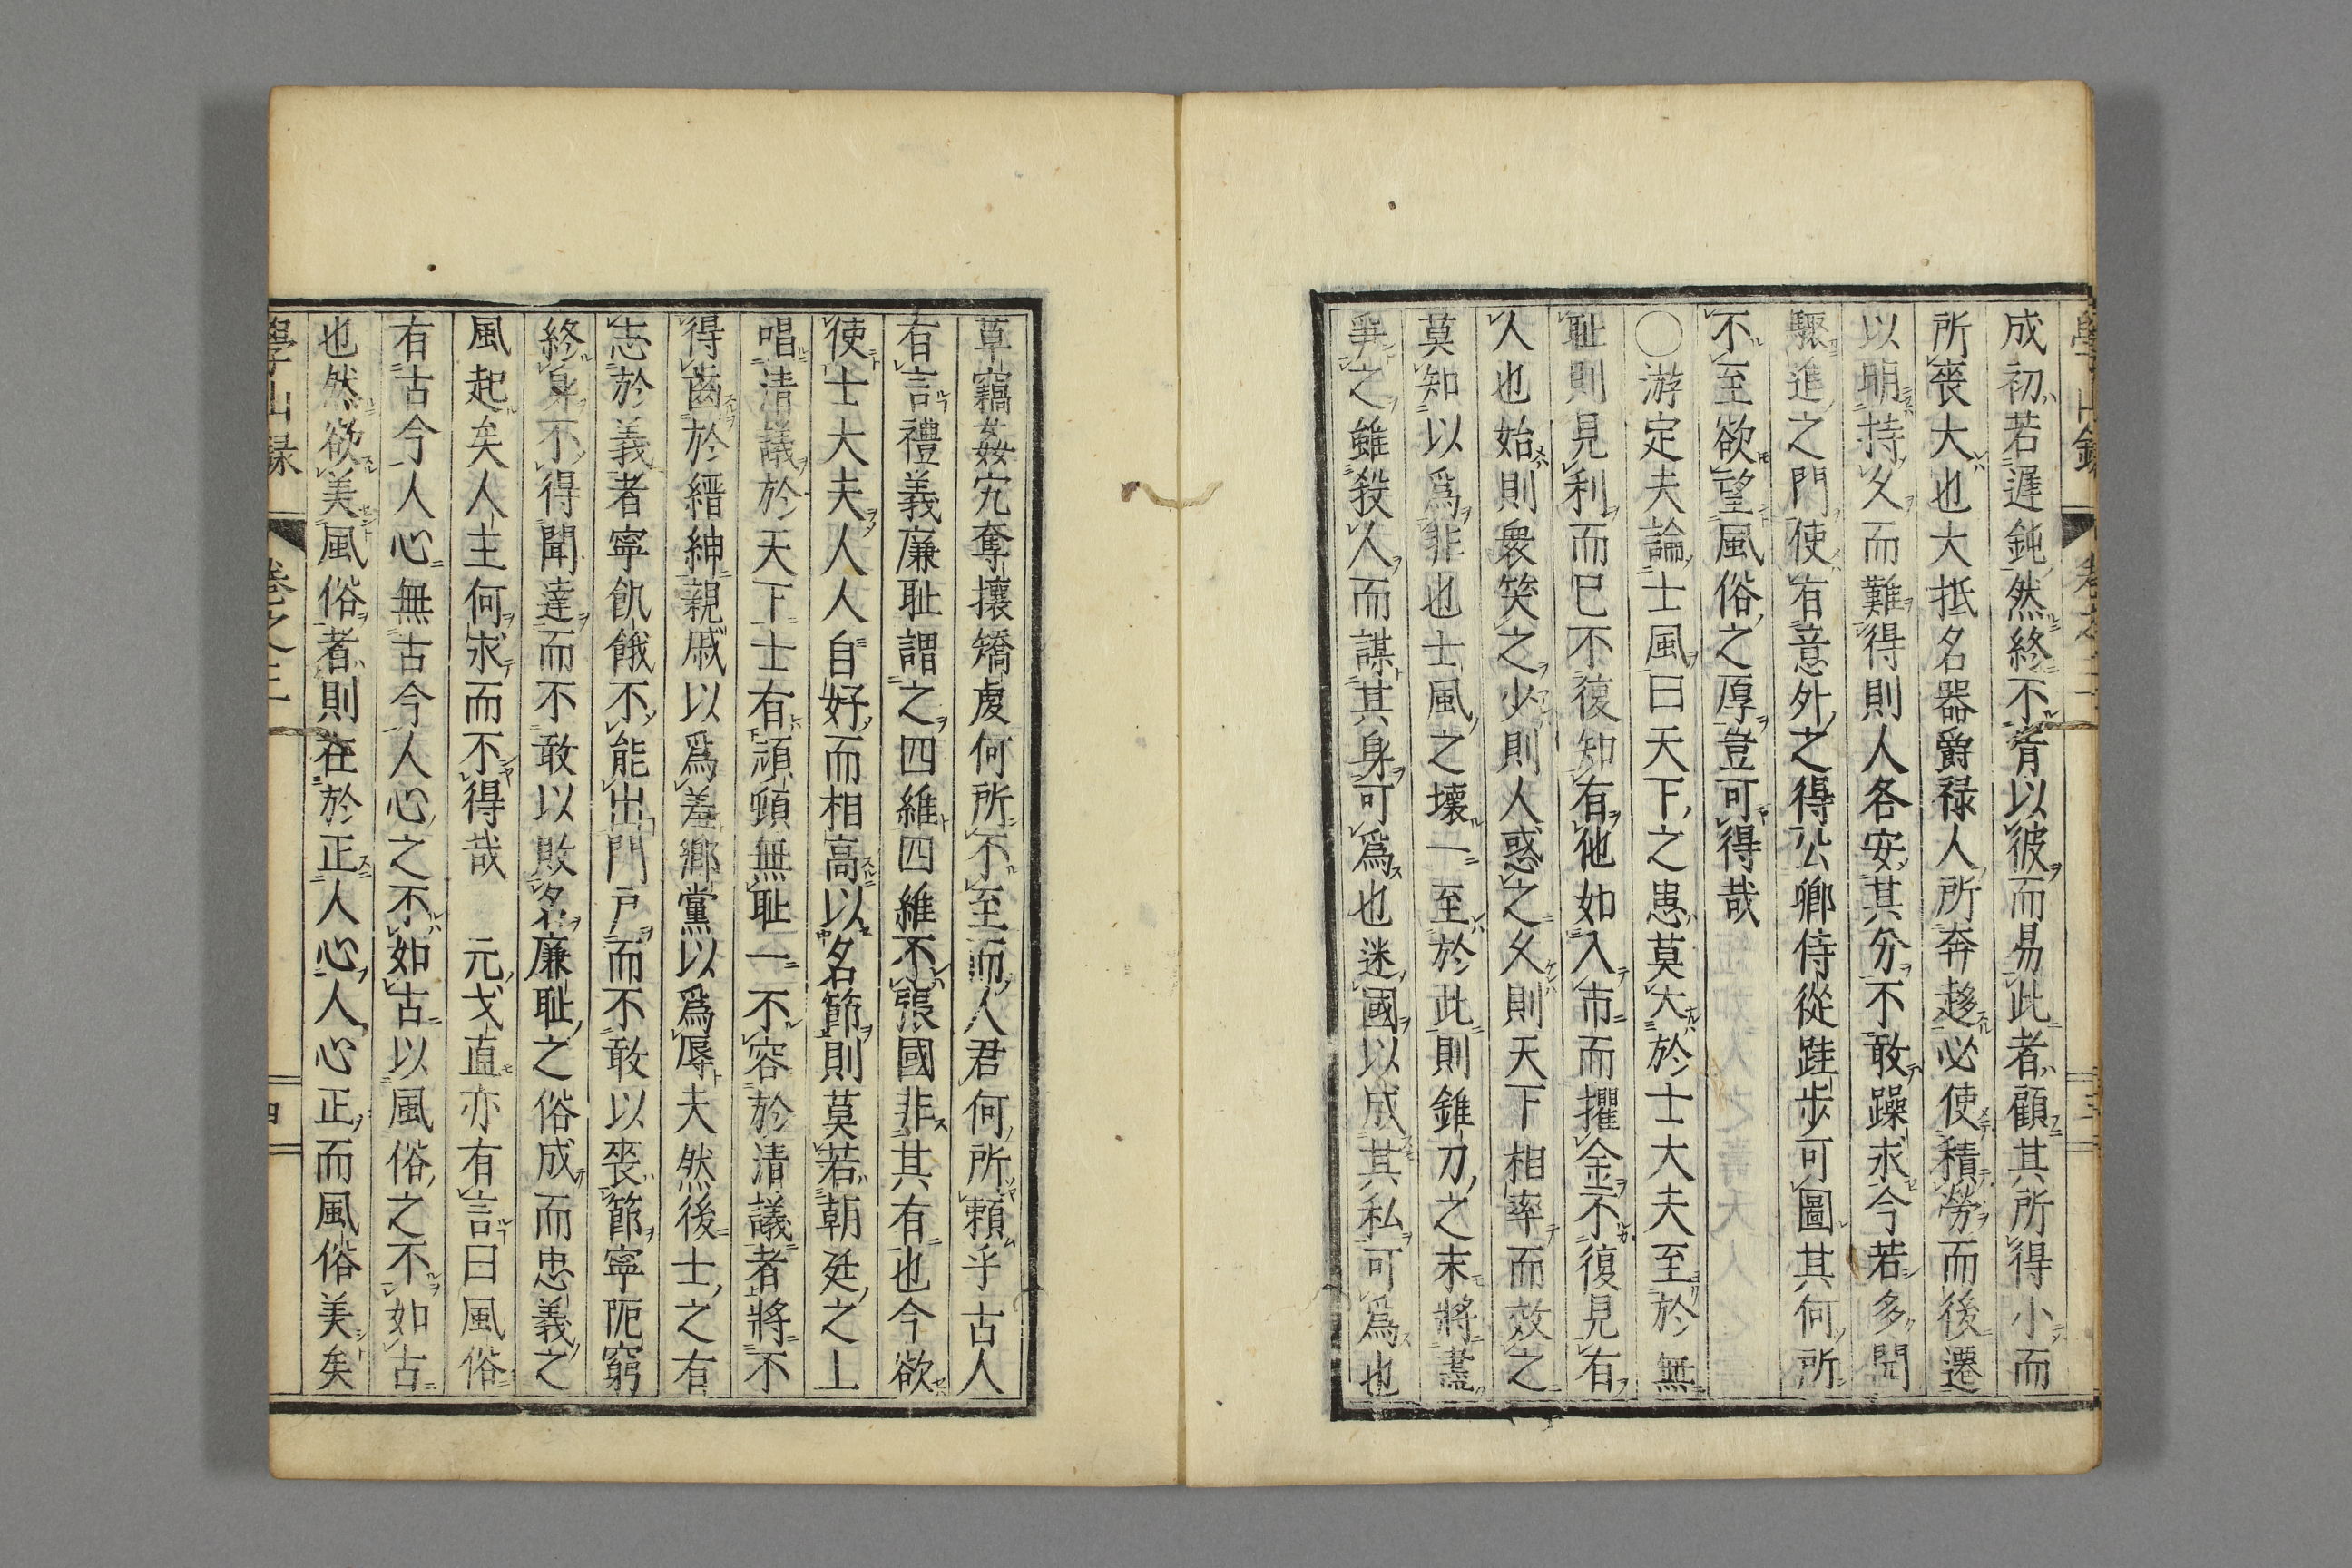 學山錄 卷之三 三
成初若遲鈍然終不肯以彼而易此者顧其所得小而
所喪大也大抵名器爵祿人所奔趍必使積勞而後遷
以明持久而難得則人各安其分不敢躁求今若多開
驟進之門使有意外之得公卿侍從跬步可圖其何所
不至欲望風俗之厚豈可得哉
〇游定夫論士風曰天下之患莫大於士大夫至於無
耻則見利而已不復知有他如入市而攫金不復見有
人也始則衆笑之少則人惑之久則天下相率而效之
莫知以爲非也士風之壞一至於此則錐刀之末將盡
爭之雖殺人而謀其身可爲也迷國以成其私可爲也
草竊姦宄奪攘矯虔何所不至而人君何所頼乎古人
有言禮義廉耻謂之四維四維不張國非其有也今欲
使士大夫人人自好而相高以名節則莫若朝廷之上
唱清議於天下士有頑頓無耻一不容於清議者將不
得齒於縉紳親戚以爲羞鄉黨以爲辱夫然後士之有
志於義者寧飢餓不能出門戸而不敢以喪節寧阨窮
終身不得聞達而不敢以敗名廉耻之俗成而忠義之
風起矣人主何求而不得哉 元戈直亦有言曰風俗
有古今人心無古今人心之不如古以風俗之不如古
也然欲美風俗者則在於正人心人心正而風俗美矣
學山録 卷之三 四